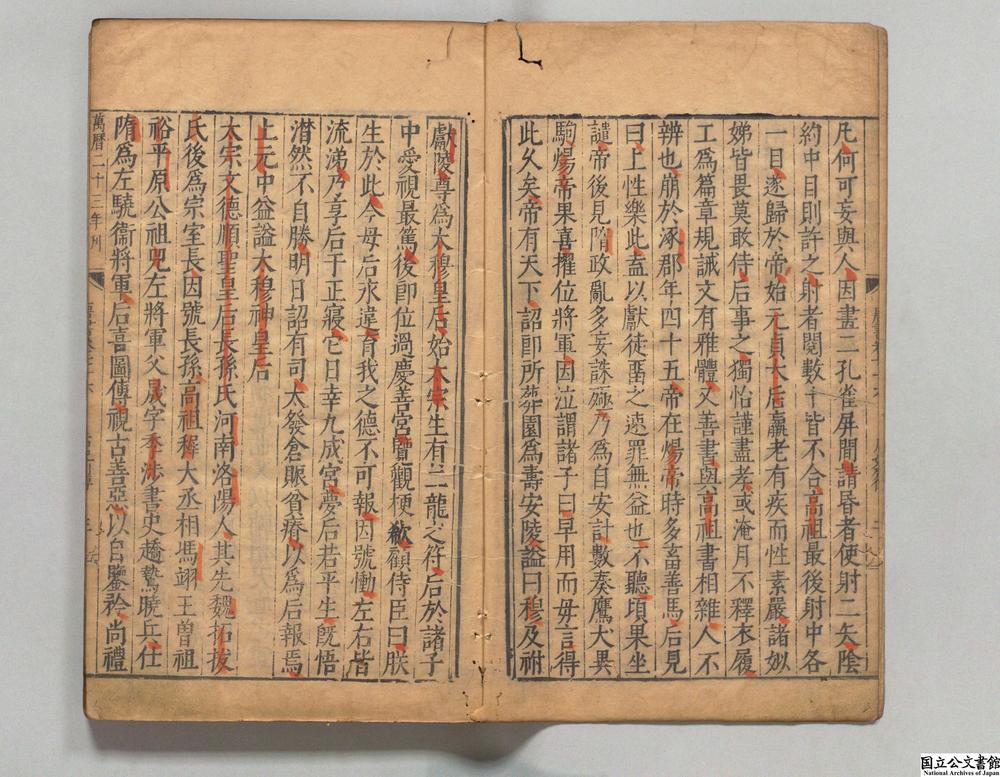 凡何可妄與人因畫二孔雀屏間請昏者使射二矢陰
約中目則許之射者閱數十皆不合高祖最後射中各
一目遂歸於帝始元貞太后羸老有疾而性素嚴諸姒
娣皆畏莫敢侍后事之獨怡謹盡孝或淹月不釋衣履
工爲篇章規誡文有雅體又善書與高祖書相雜人不
辨也崩於涿郡年四十五帝在煬帝時多畜善馬后見
曰上性樂此盍以獻徒畱之速罪無益也不聽頃果坐
譴帝後見隋政亂多妄誅殛乃爲自安計數奏鷹犬異
駒煬帝果喜擢位將軍因泣謂諸子曰早用而毋言得
此久矣帝有天下詔卽所葬園爲壽安陵諡曰穆及祔
獻陵尊爲太穆皇后始太宗生有二龍之符后於諸子
中愛視最篤後卽位過慶善宮覽觀梗欷顧侍臣曰朕
生於此今母后永違育我之德不可報因號慟左右皆
流涕乃享后于正寢它日幸九成宮夢后若平生旣悟
潸然不自勝明日詔有司大發倉賑貧瘠以爲后報焉
上元中益諡太穆神皇后
太宗文德順聖皇后長孫氏河南洛陽人其先魏拓拔
氏後爲宗室長因號長孫高祖稺大丞相馮翊王曾祖
裕平原公祖兕左將軍父晟字季涉書史趫鷙曉兵仕
隋爲左驍衞將軍后喜圖傳視古善惡以自鑒矜尚禮
萬曆二十三年刋
国立公文書館
National Archives of Japan